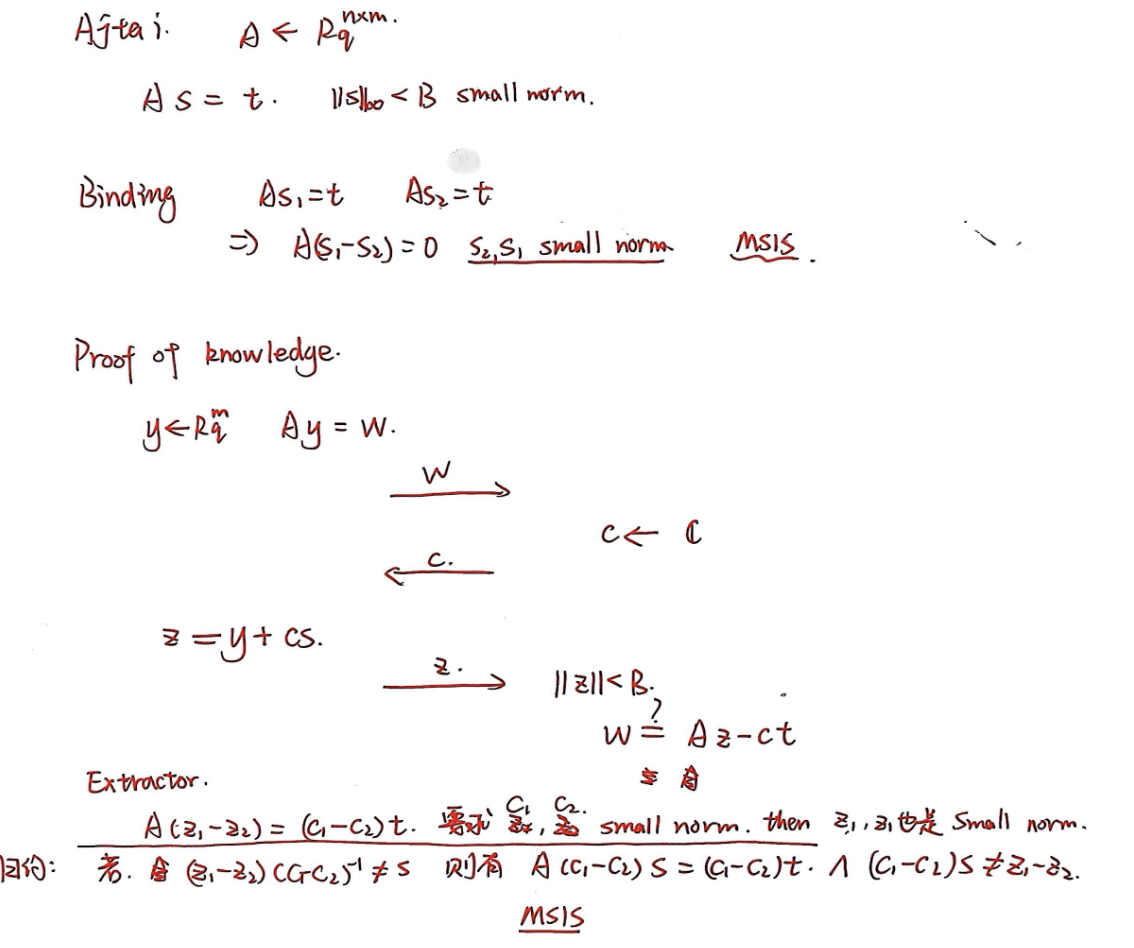 Ajtai. A ← R_q^{n×m}.
As = t. ||s||_∞ < B small norm.
Binding As₁=t As₂=t
⇒ A(s₁-s₂)=0 s₂,s₁ small norm MSIS.
Proof of knowledge.
y←R_q^m Ay = w.
w
c← ℂ
c.
z = y + cs.
z. ||z||<B.
w ≟ Az-ct
Extractor.
A(z₁-z₂) = (c₁-c₂)t. 需求 c₁, c₂. small norm. then z₁, z₁也是 small norm.
归约: 若. (z₁-z₂)(c₁-c₂)⁻¹ ≠ s 则有 A(c₁-c₂)s = (c₁-c₂)t. ∧ (c₁-c₂)s ≠ z₁-z₂.
MSIS